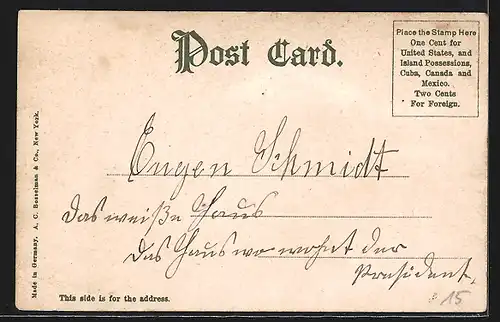 Post Card.
Place the Stamp Here
One Cent for
United States, and
Island Possessions,
Cuba, Canada and
Mexico.
Two Cents
For Foreign.
Eugen Schmidt
Das weiße Haus
Das Haus wo wohnt der
Präsident.
Made in Germany. A. C. Bosselman & Co., New York.
This side is for the address.
15